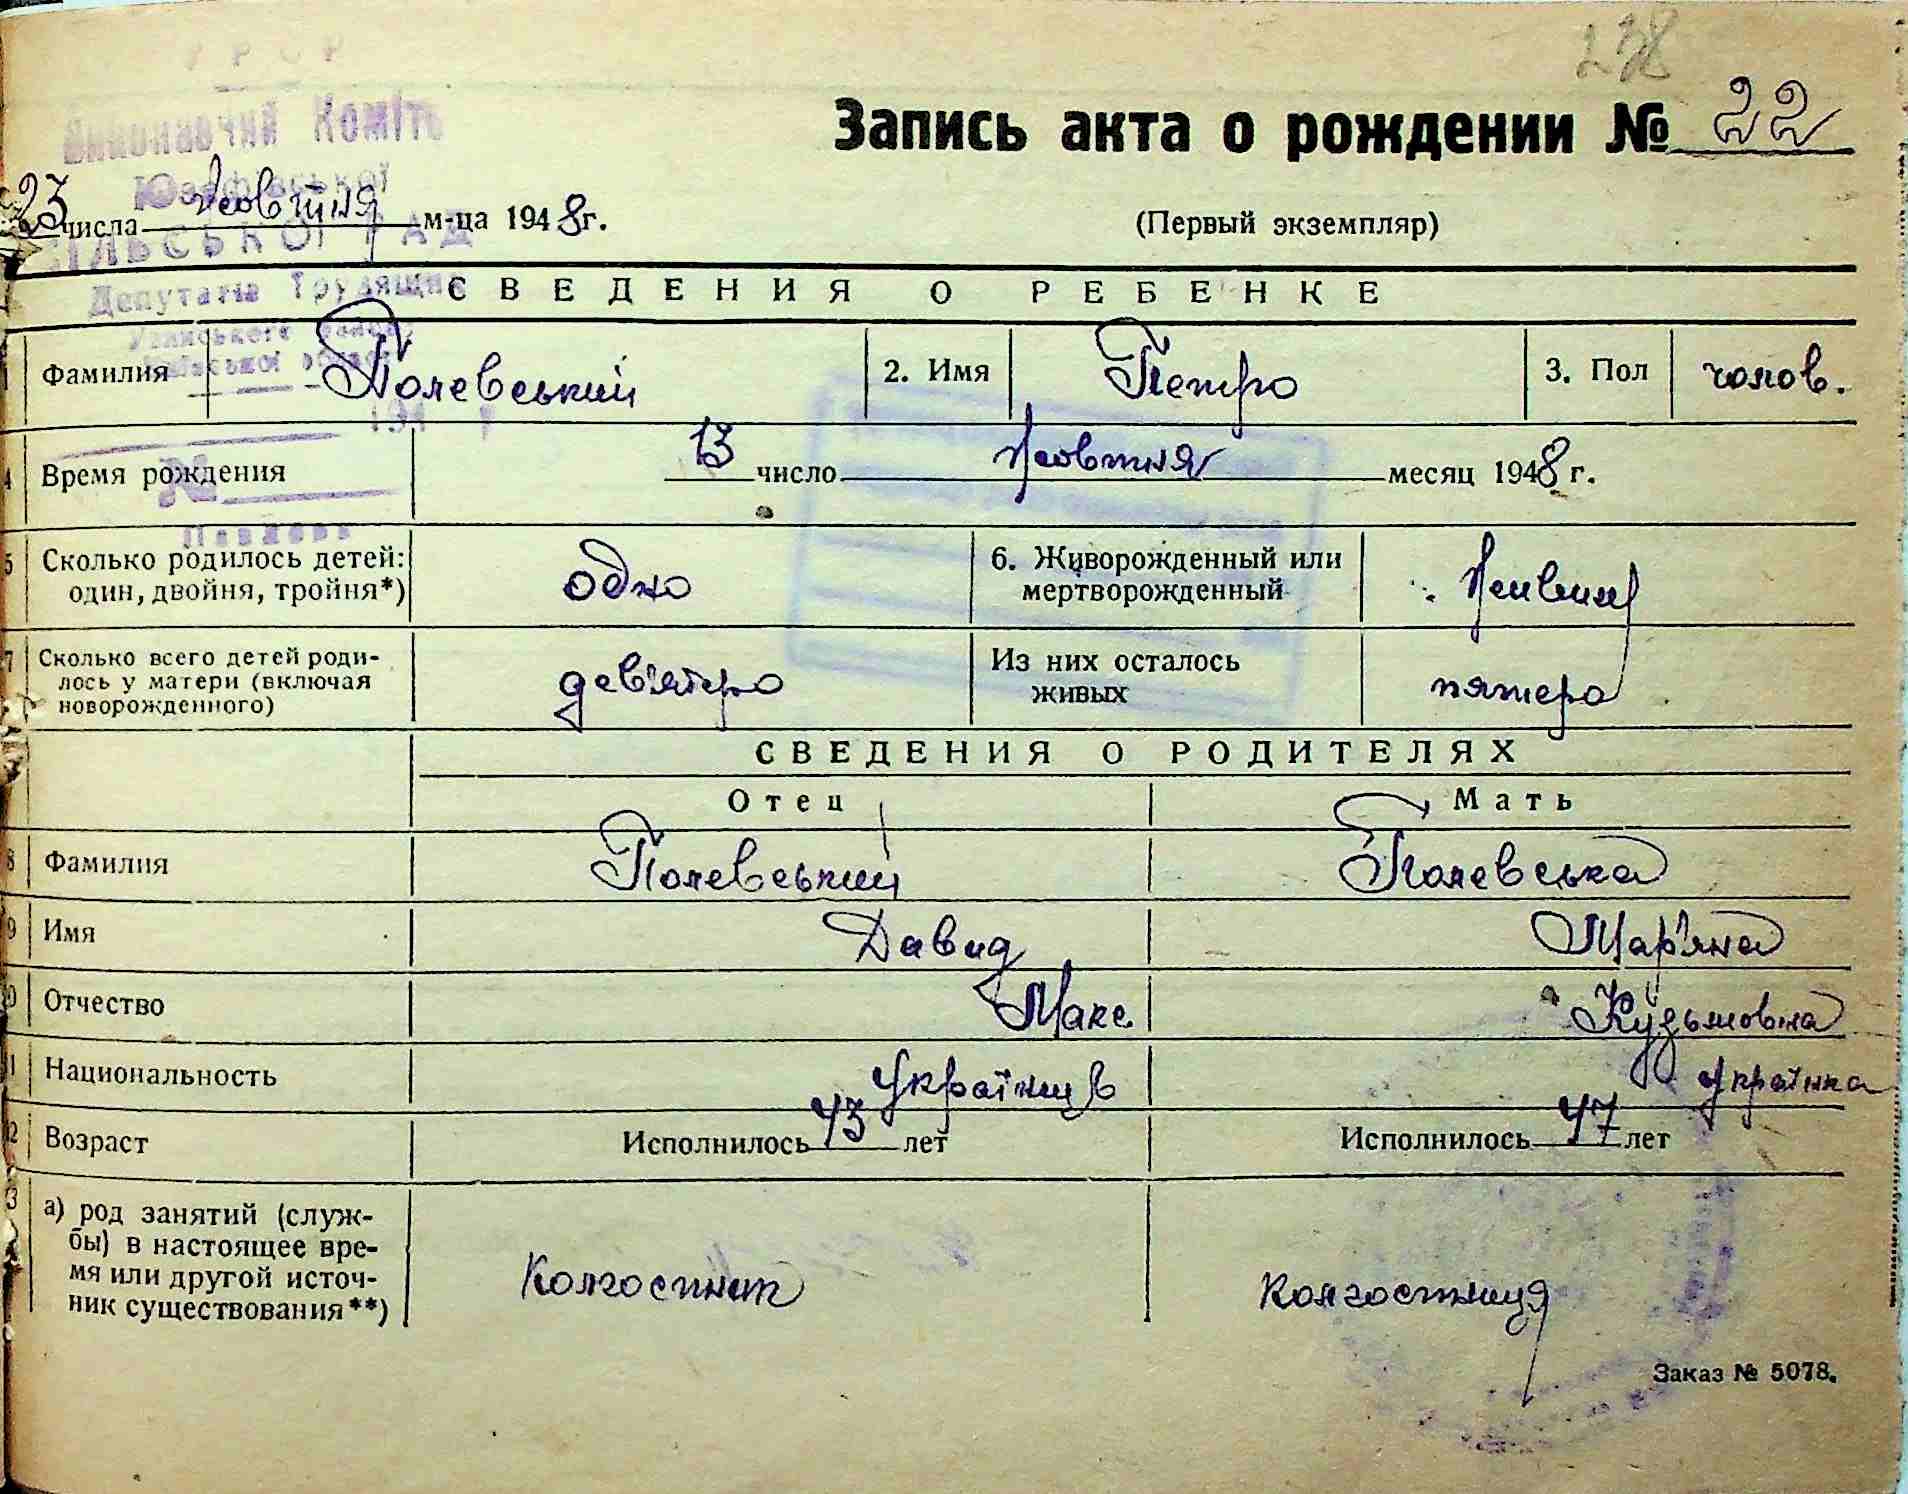 238
Запись акта о рождении № 22
Виконавчий Коміте
Юзефівської
23 числа жовтня м-ца 1948 г.
(Первый экземпляр)
СІЛЬСЬКОЇ РАД
Депутатів Трудящих
СВЕДЕНИЯ О РЕБЕНКЕ
Фамилия Полевський 2. Имя Петро 3. Пол чолов.
4 Время рождения 13 число жовтня месяц 1948 г.
№
5 Сколько родилось детей: один, двойня, тройня*) одно 6. Живорожденный или мертворожденный живий
7 Сколько всего детей родилось у матери (включая новорожденного) дев'ятеро Из них осталось живых пятеро
СВЕДЕНИЯ О РОДИТЕЛЯХ
Отец Мать
8 Фамилия Полевський Полевська
9 Имя Давид Мар'яна
0 Отчество Макс. Кузьмовна
1 Национальность українец українка
2 Возраст Исполнилось 43 лет Исполнилось 47 лет
3 а) род занятий (служ-
бы) в настоящее вре-
мя или другой источ-
ник существования**) Колгоспник колгоспниця
Заказ № 5078.